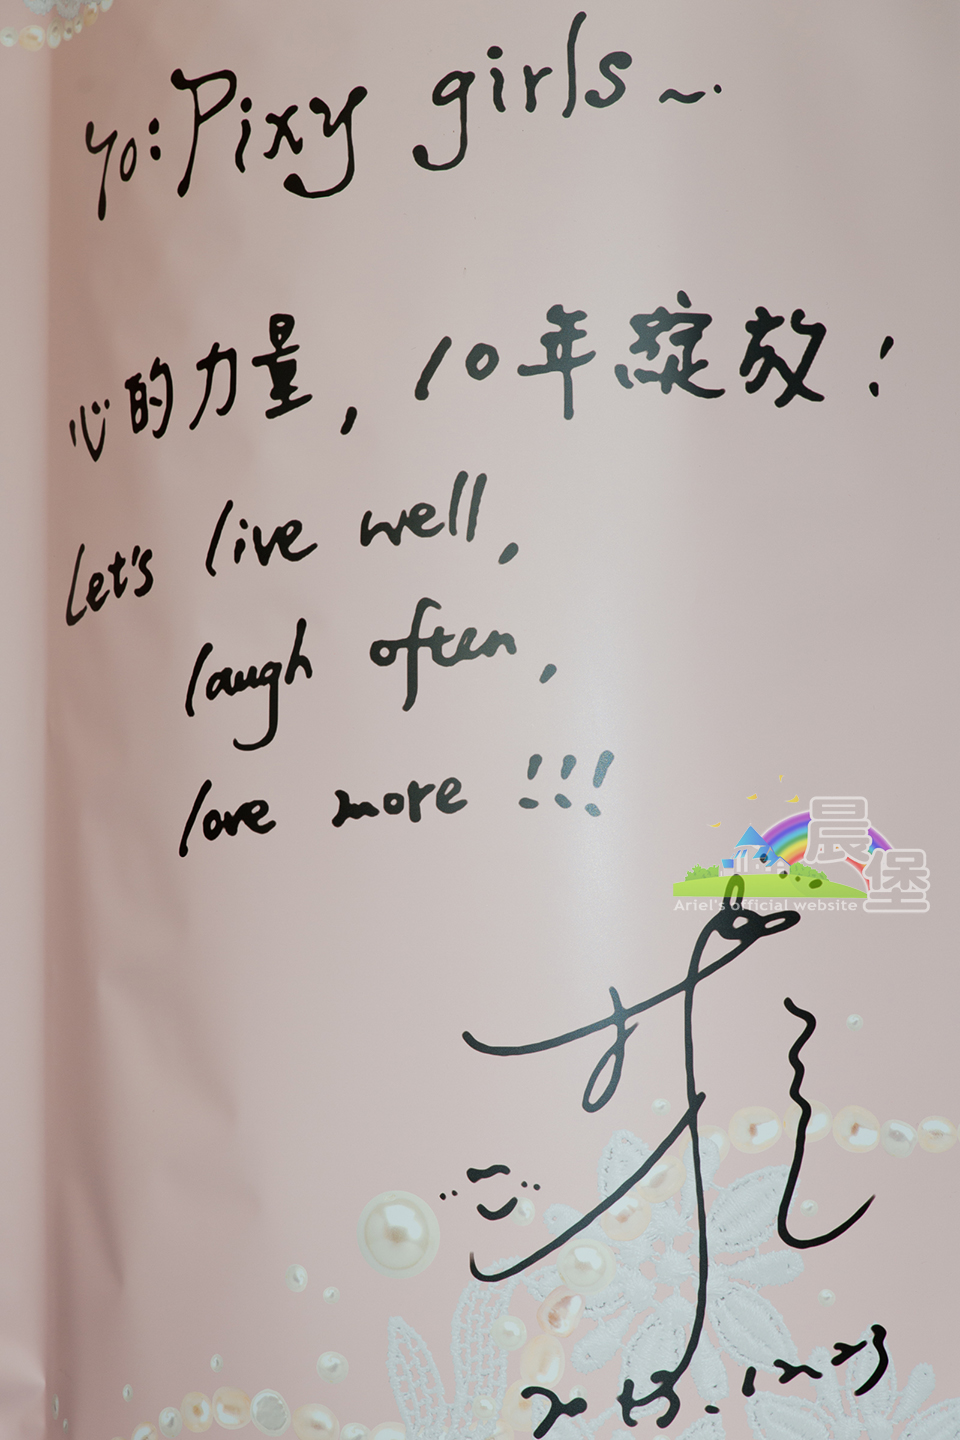 To: Pixy girls~.
心的力量, 10年绽放!
Let's live well,
laugh often,
love more !!!
晨
堡
Ariel's official website